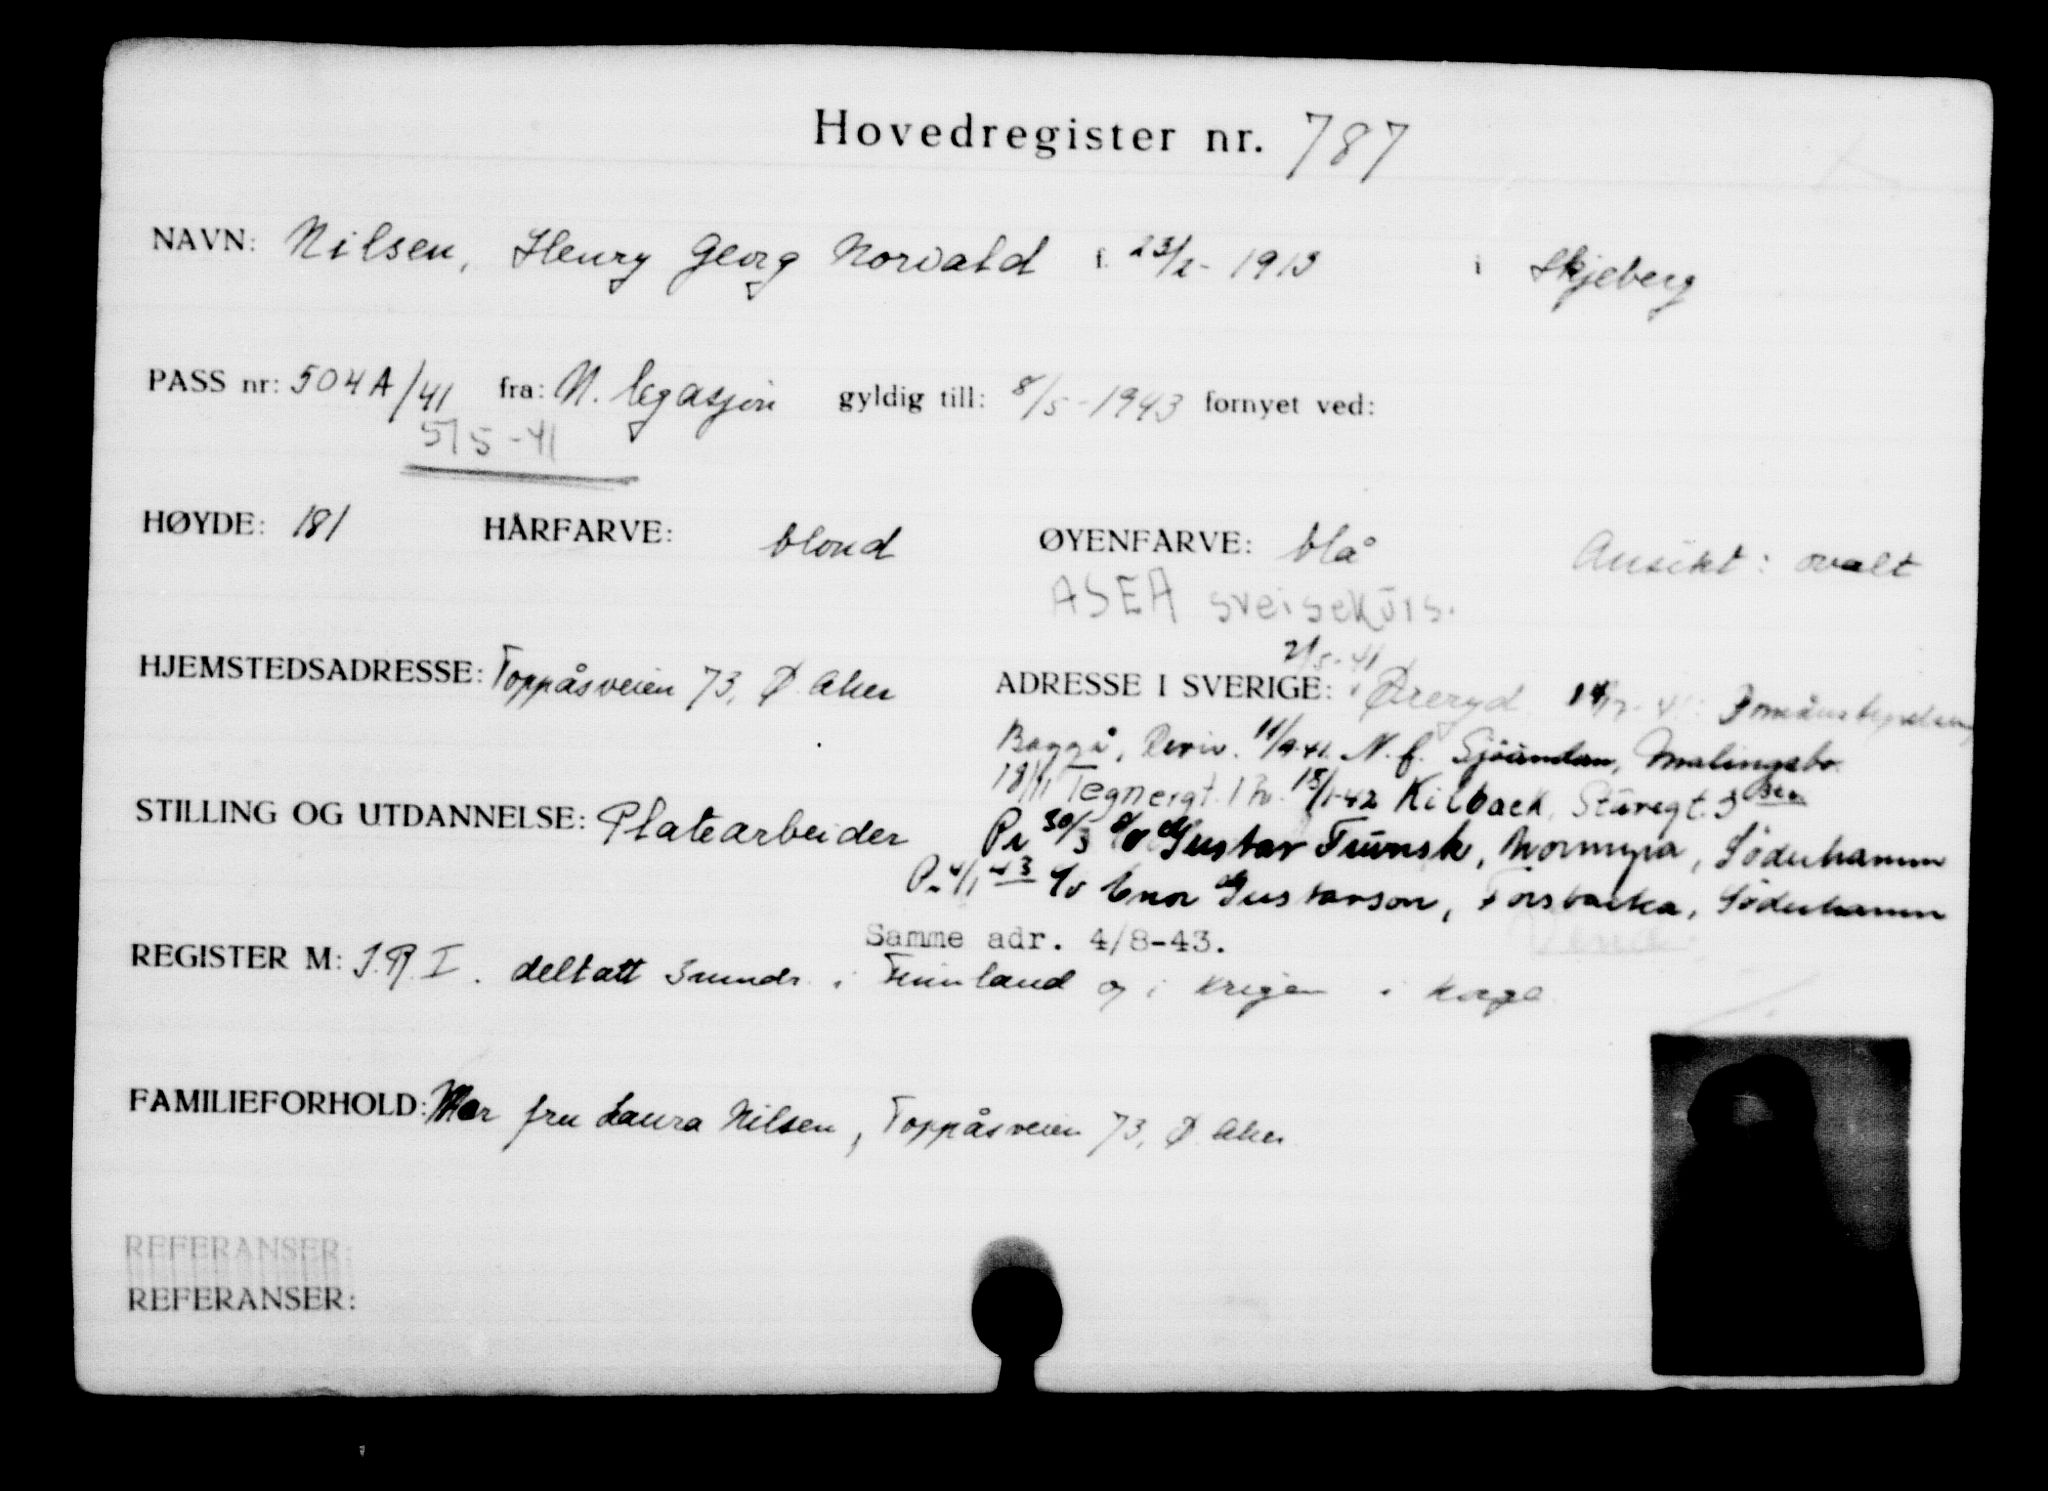 Hovedregister nr. 787
NAVN: Nilsen, Henry Georg Norvald f. 23/2-1913 i Skjeberg
PASS nr: 504A/41 fra: N. legasjon gyldig till: 8/5-1943 fornyet ved:
5/5-41
HØYDE: 181 HÅRFARVE: blond ØYENFARVE: blå Ansikt: ovalt
ASEA sveisekurs.
2/5-41
HJEMSTEDSADRESSE: Toppåsveien 73, Ø. Aker ADRESSE I SVERIGE: Øreryd
Baggå, 11/9-41. N.f. Sjöändan, Malingsbo.
18/11 Tegnergt. 15/1-42 Kilback, Sturegt. 3
STILLING OG UTDANNELSE: Platearbeider Pr 30/3 c/o Gustav Trünsk, Mormyra, Söderhamn
Pr 4/1 43 c/o Enor Gustavson, Forsbacka, Söderhamn
Samme adr. 4/8-43.
REGISTER M: I.R. I. deltatt 3 mndr. i Finnland og i krigen i Norge
FAMILIEFORHOLD: Mor fru Laura Nilsen, Toppåsveien 73, Ø. Aker
REFERANSER:
REFERANSER: